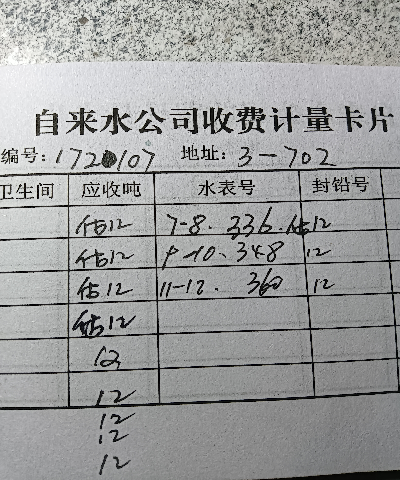 自来水公司收费计量卡片
编号: 172107 地址: 3-702
卫生间 应收吨 水表号 封铅号
估12 7-8. 336. 估12
估12 9-10. 348 12
估12 11-12. 360 12
估12
12
12
12
12
12